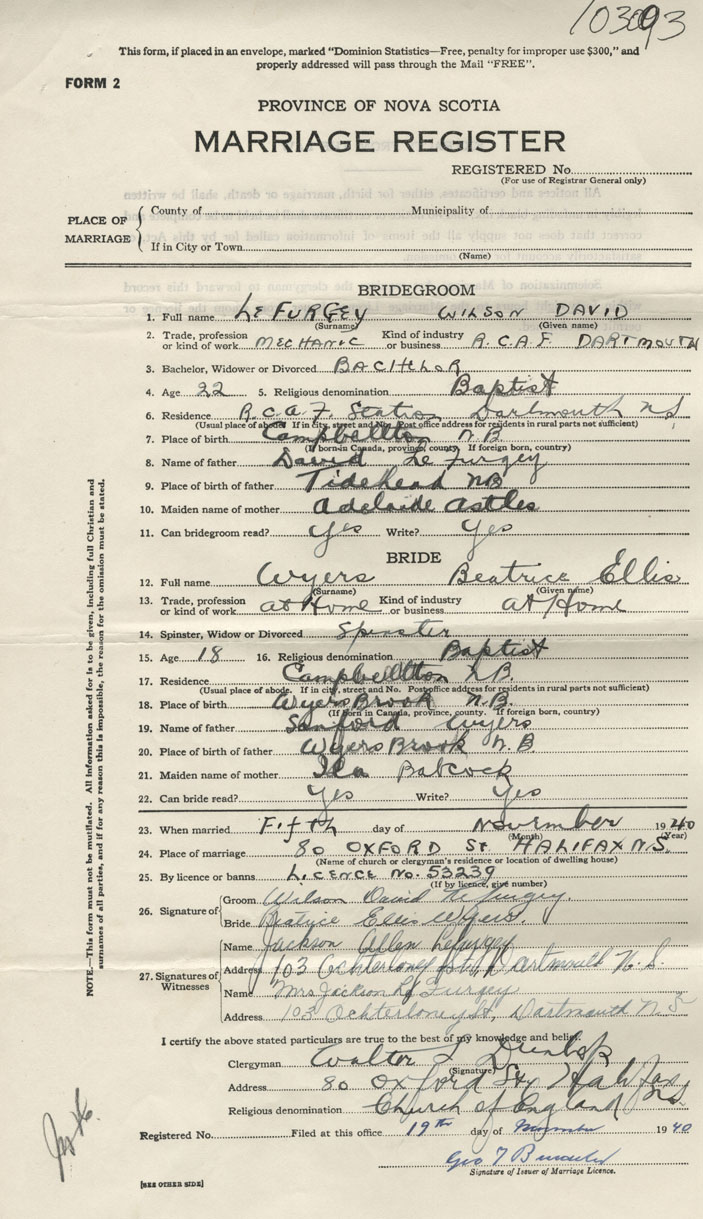 103093
This form, if placed in an envelope, marked "Dominion Statistics—Free, penalty for improper use $300," and
properly addressed will pass through the Mail "FREE".
FORM 2
PROVINCE OF NOVA SCOTIA
MARRIAGE REGISTER
REGISTERED No.
(For use of Registrar General only)
PLACE OF MARRIAGE
County of Municipality of
If in City or Town
(Name)
BRIDEGROOM
1. Full name LeFURGEY WILSON DAVID
(Surname) (Given name)
2. Trade, profession or kind of work MECHANIC Kind of industry or business R.C.A.F. DARTMOUTH
3. Bachelor, Widower or Divorced BACHELOR
4. Age 22 5. Religious denomination Baptist
6. Residence R.C.A.F. Station Dartmouth NS
(Usual place of abode. If in city, street and No. Post office address for residents in rural parts not sufficient)
7. Place of birth Campbellton N.B.
(If born in Canada, province, county. If foreign born, country)
8. Name of father David LeFurgey
9. Place of birth of father Tidehead NB
10. Maiden name of mother Adelaide Astles
11. Can bridegroom read? Yes Write? Yes
BRIDE
12. Full name Wyers Beatrice Ellis
(Surname) (Given name)
13. Trade, profession or kind of work at Home Kind of industry or business at Home
14. Spinster, Widow or Divorced Spinster
15. Age 18 16. Religious denomination Baptist
17. Residence Campbellton N.B.
(Usual place of abode. If in city, street and No. Post office address for residents in rural parts not sufficient)
18. Place of birth Wyers Brook N.B.
(If born in Canada, province, county. If foreign born, country)
19. Name of father Sanford Wyers
20. Place of birth of father Wyers Brook N.B.
21. Maiden name of mother Ila Babcock
22. Can bride read? Yes Write? Yes
23. When married Fifth day of November 1940
(Month) (Year)
24. Place of marriage 80 OXFORD St HALIFAX N.S.
(Name of church or clergyman's residence or location of dwelling house)
25. By licence or banns LICENCE No. 53239
(If by licence, give number)
26. Signature of
Groom Wilson David LeFurgey.
Bride Beatrice Ellis Wyers.
27. Signatures of Witnesses
Name Jackson Allen LeFurgey
Address 103 Ochterloney St, Dartmouth N.S.
Name Mrs Jackson LeFurgey
Address 103 Ochterloney St, Dartmouth N.S
I certify the above stated particulars are true to the best of my knowledge and belief.
Clergyman Walter Dunlop
(Signature)
Address 80 Oxford St Halifax NS
Religious denomination Church of England
Registered No. Filed at this office 19th day of November 1940
Geo
Signature of Issuer of Marriage Licence.
[SEE OTHER SIDE]
NOTE.—This form must not be mutilated. All information asked for is to be given, including full Christian and
surnames of all parties, and if for any reason this is impossible, the reason for the omission must be stated.